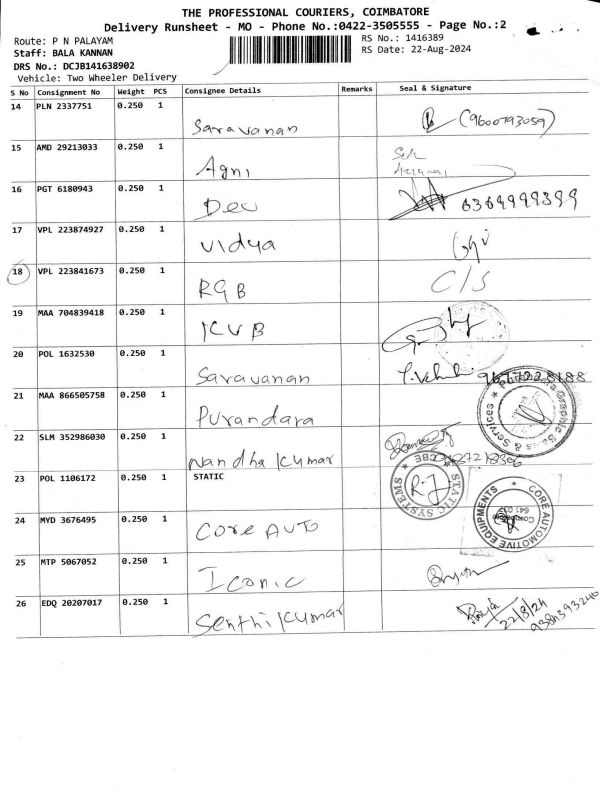 THE PROFESSIONAL COURIERS, COIMBATORE
Delivery Runsheet - MO - Phone No.:0422-3505555 - Page No.:2
Route: P N PALAYAM
RS No.: 1416389
Staff: BALA KANNAN
RS Date: 22-Aug-2024
DRS No.: DCJB141638902
Vehicle: Two Wheeler Delivery
S No Consignment No Weight PCS Consignee Details Remarks Seal & Signature
14 PLN 2337751 0.250 1 Saravanan (9600793059)
15 AMD 29213033 0.250 1 Agni
16 PGT 6180943 0.250 1 Dev 6369999399
17 VPL 223874927 0.250 1 Vidya
18 VPL 223841673 0.250 1 RGB C/S
19 MAA 704839418 0.250 1 KVB
20 POL 1632530 0.250 1 Saravanan
21 MAA 866505758 0.250 1 Purandara
22 SLM 352986030 0.250 1 Nandha Kumar
23 POL 1106172 0.250 1 STATIC
STATIC SYSTEMS CBE
24 MYD 3676495 0.250 1 Core AUTO
CORE AUTOMOTIVE EQUIPMENTS
25 MTP 5067052 0.250 1 Iconic
26 EDQ 20207017 0.250 1 Senthil Kumar
22/8/24